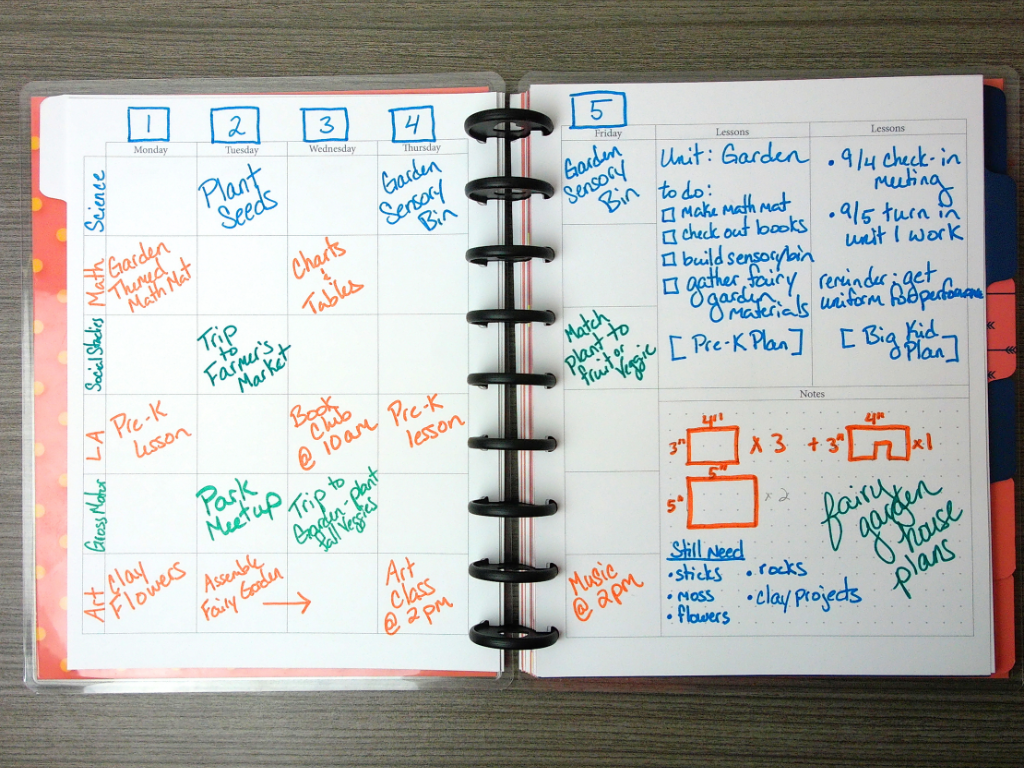 1
2
3
4
Monday
Tuesday
Wednesday
Thursday
Science
Plant
Seeds
Garden
Sensory
Bin
Math
Garden
Themed
Math Mat
Charts
&
Tables
Social Studies
Trip
to
Farmer's
Market
LA
Pre-K
lesson
Book
Club
@ 10am
Pre-K
lesson
Gross Motor
Park
Meetup
Trip to
Garden-plant
fall veggies
Art
Clay
Flowers
Assemble
Fairy Garden
→
Art
Class
@ 2pm
5
Friday
Garden
Sensory
Bin
Match
plant to
fruit or
veggie
Music
@ 2pm
Lessons
Unit: Garden
to do:
□ make math mat
□ check out books
□ build sensory bin
□ gather fairy
garden
materials
[Pre-K Plan]
Lessons
• 9/4 check-in
meeting
• 9/5 turn in
unit 1 work
reminder: get
uniform for performance
[Big Kid
Plan]
Notes
4"
3"
x 3
+ 3"
4"
x1
5"
5"
x 2
fairy
garden
house
plans
Still Need
• sticks
• moss
• flowers
• rocks
• clay projects